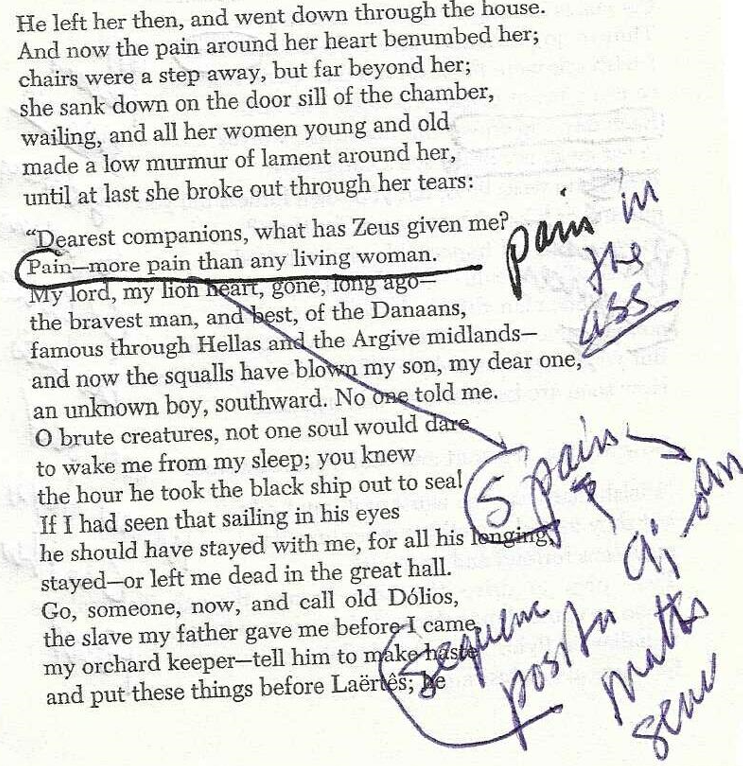 He left her then, and went down through the house.
And now the pain around her heart benumbed her;
chairs were a step away, but far beyond her;
she sank down on the door sill of the chamber,
wailing, and all her women young and old
made a low murmur of lament around her,
until at last she broke out through her tears:
“Dearest companions, what has Zeus given me?
Pain—more pain than any living woman.
My lord, my lion heart, gone, long ago—
the bravest man, and best, of the Danaans,
famous through Hellas and the Argive midlands—
and now the squalls have blown my son, my dear one,
an unknown boy, southward. No one told me.
O brute creatures, not one soul would dare
to wake me from my sleep; you knew
the hour he took the black ship out to seal
If I had seen that sailing in his eyes
he should have stayed with me, for all his longing,
stayed—or left me dead in the great hall.
Go, someone, now, and call old Dólios,
the slave my father gave me before I came,
my orchard keeper—tell him to make haste
and put these things before Laërtês; he
pain in
the
ass
5 pains